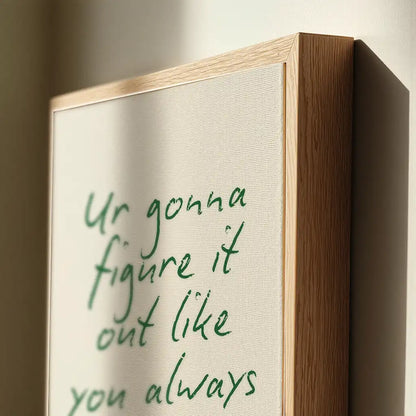 Ur gonna
figure it
out like
you always